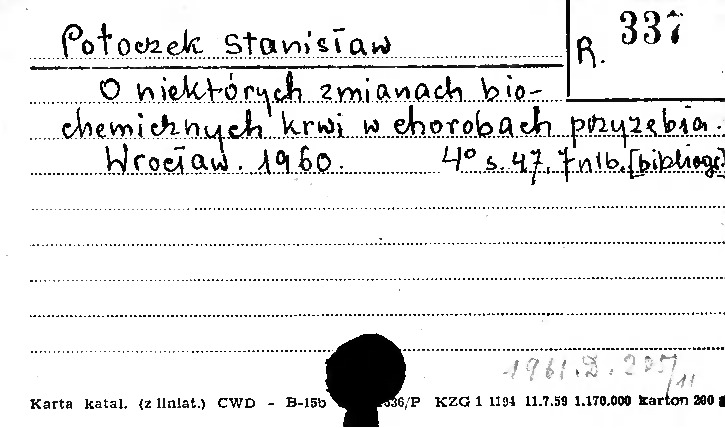 Potoczek Stanisław
R. 337
O niektórych zmianach bio-
chemicznych krwi w chorobach przyzębia.
Wrocław. 1960. 4° s. 47, 7 nlb. [bibliogr.]
1961.D.205/11
Karta katal. (z liniat.) CWD - B-15b 536/P KZG 1 1194 11.7.59 1.170.000 karton 200 g